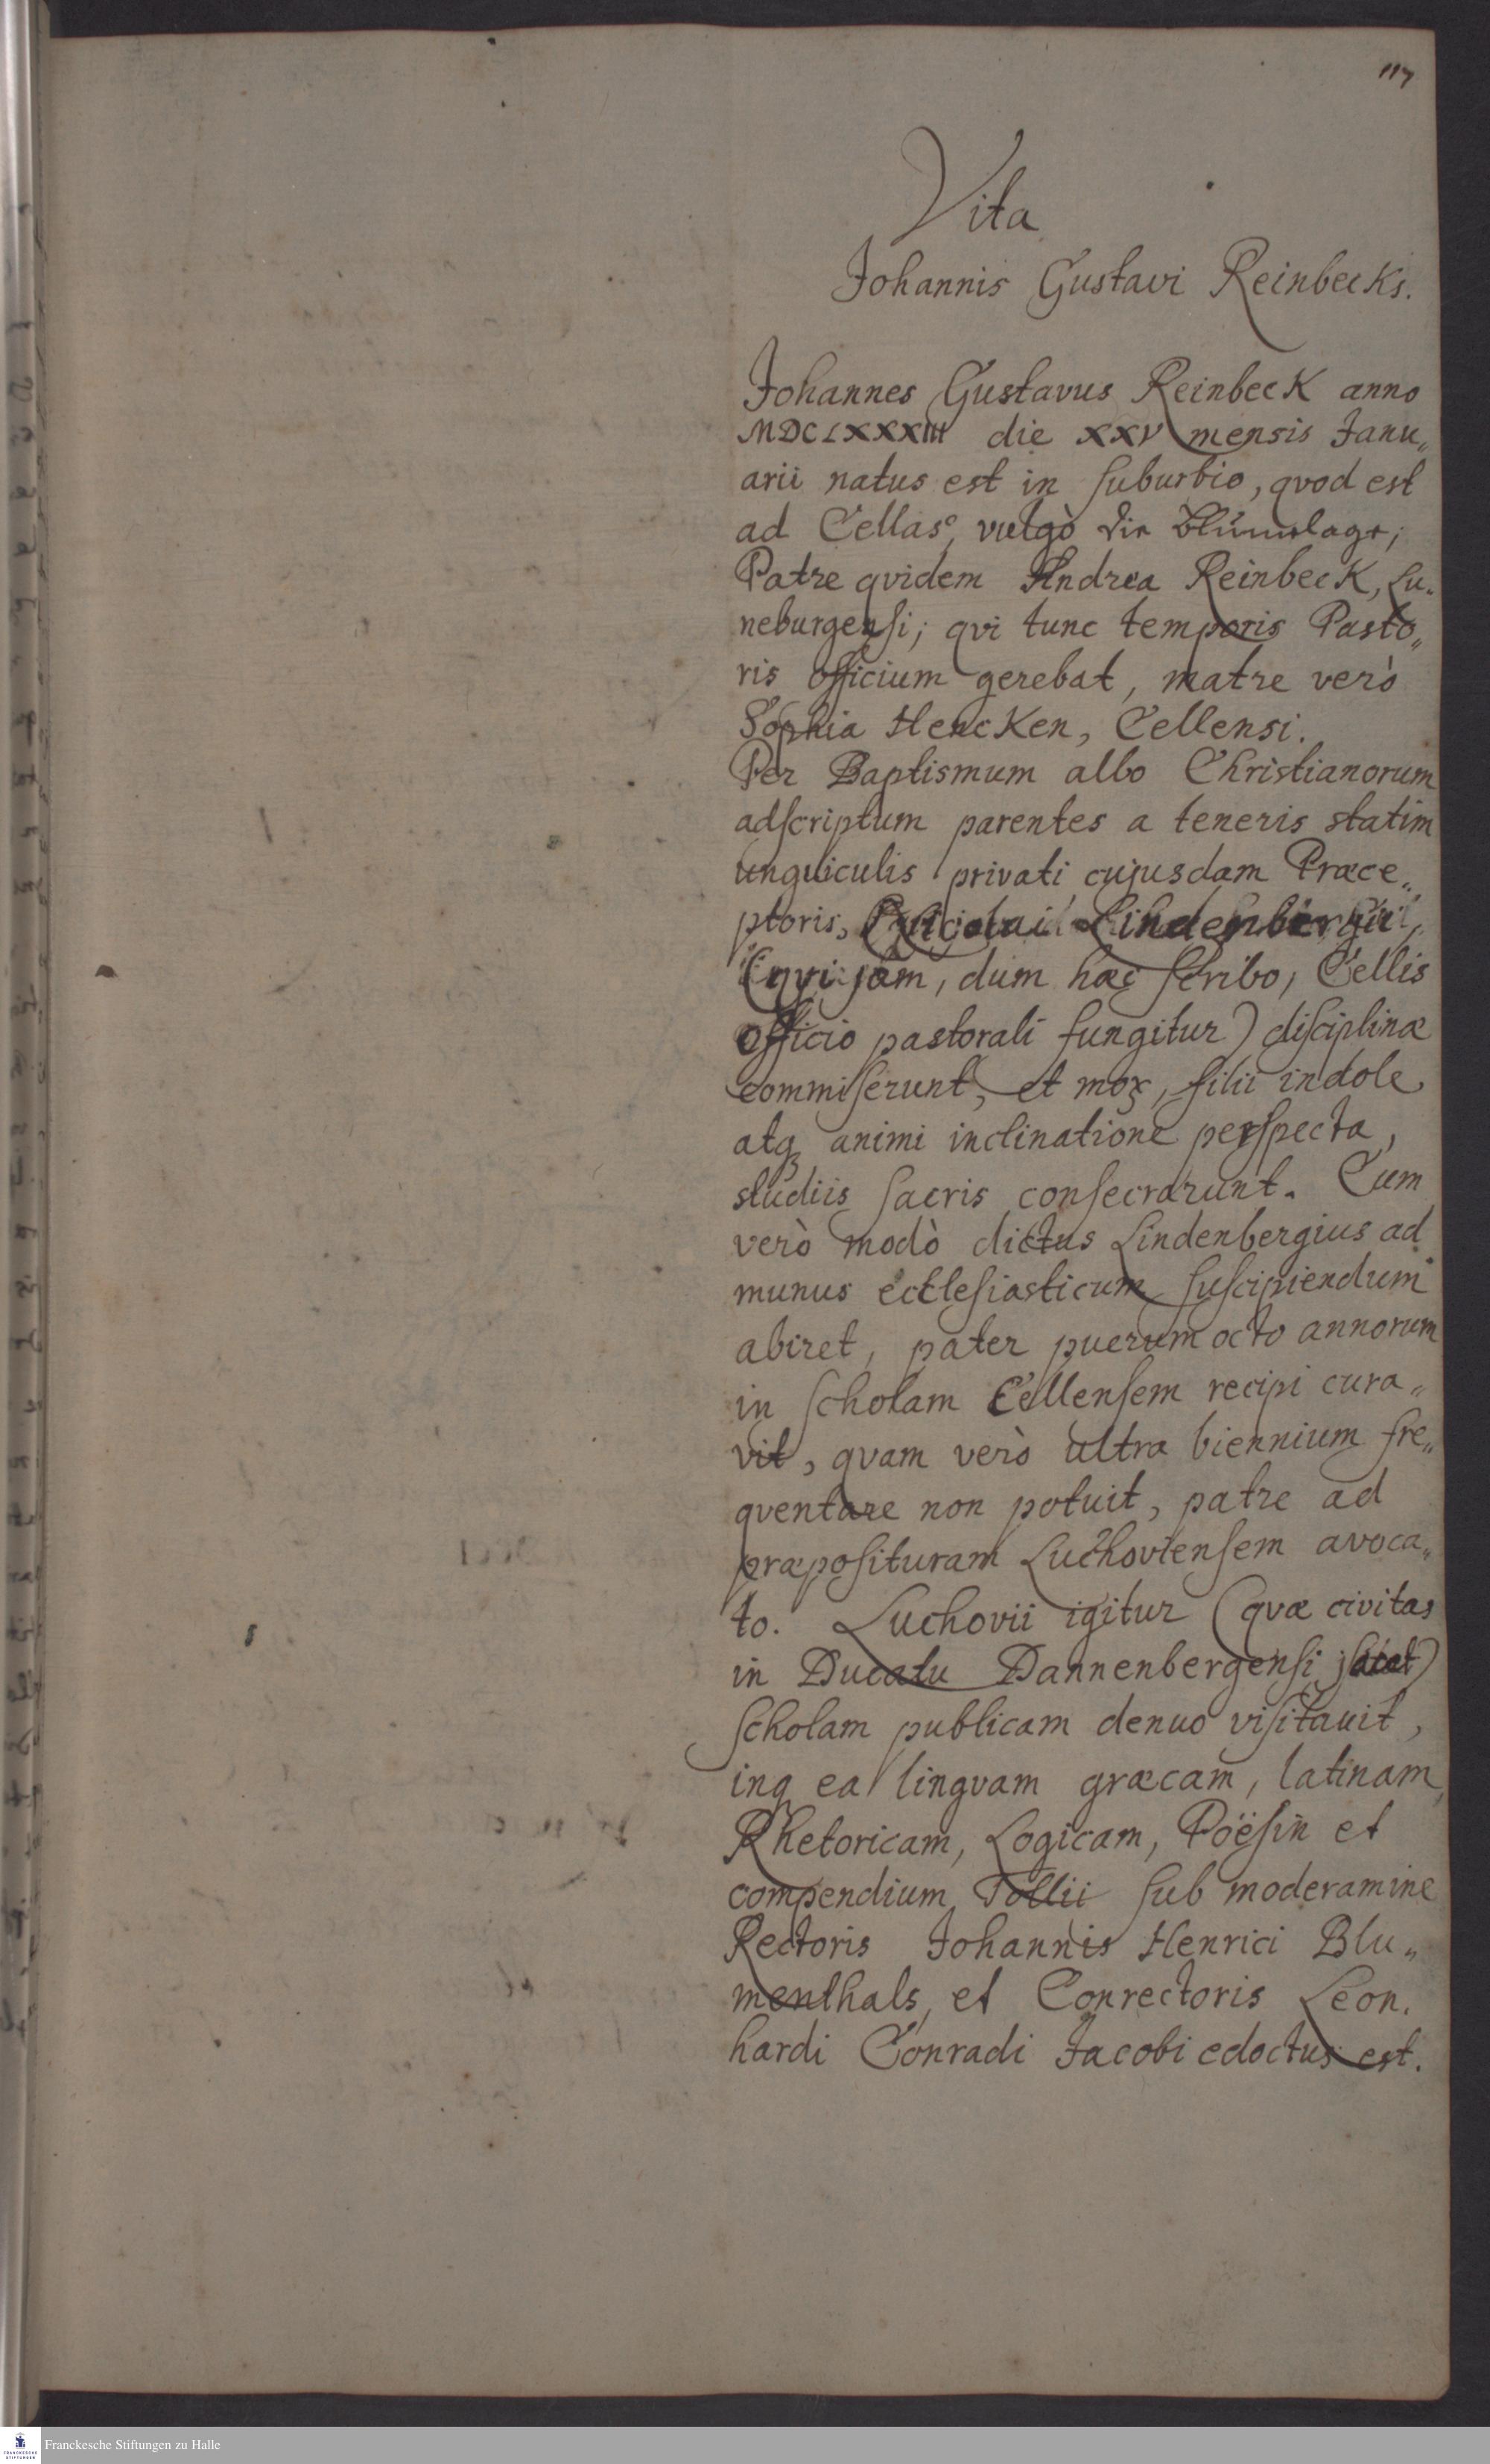 117
Vita
Johannis Gustavi Reinbecks.
Johannes Gustavus Reinbeck anno
MDCLXXXIII die XXV mensis Janu„
arii natus est in suburbio, qvod est
ad Cellas, vulgò die Blumlage;
Patre qvidem Andrea Reinbeck, Lu„
neburgensi; qvi tunc temporis Pasto„
ris officium gerebat, matre verò
Sophia Hencken, Cellensi.
Per Baptismum albo Christianorum
adscriptum parentes a teneris statim
unguiculis privati cujusdam Præce„
ptoris, Nicolai Lindenbergii,
(qvi jam, dum hæc scribo, Cellis
officio pastorali fungitur) disciplinæ
commiserunt, et mox, filii indole
atq animi inclinatione perspecta,
studiis sacris consecrarunt. Cum
verò modò dictus Lindenbergius ad
munus ecclesiasticum suscipiendum
abiret, pater puerum octo annorum
in scholam Cellensem recipi cura„
vit, qvam verò ultra biennium fre„
qventare non potuit, patre ad
præposituram Luchoviensem avoca„
to. Luchovii igitur (qvæ civitas
in Ducatu Dannenbergensi jacet)
scholam publicam denuo visitauit,
inq ea lingvam græcam, latinam,
Rhetoricam, Logicam, Poësin et
compendium Tollii sub moderamine
Rectoris Johannis Henrici Blu„
menthals, et Conrectoris Leon.
hardi Conradi Jacobi edoctus est.
Franckesche Stiftungen zu Halle